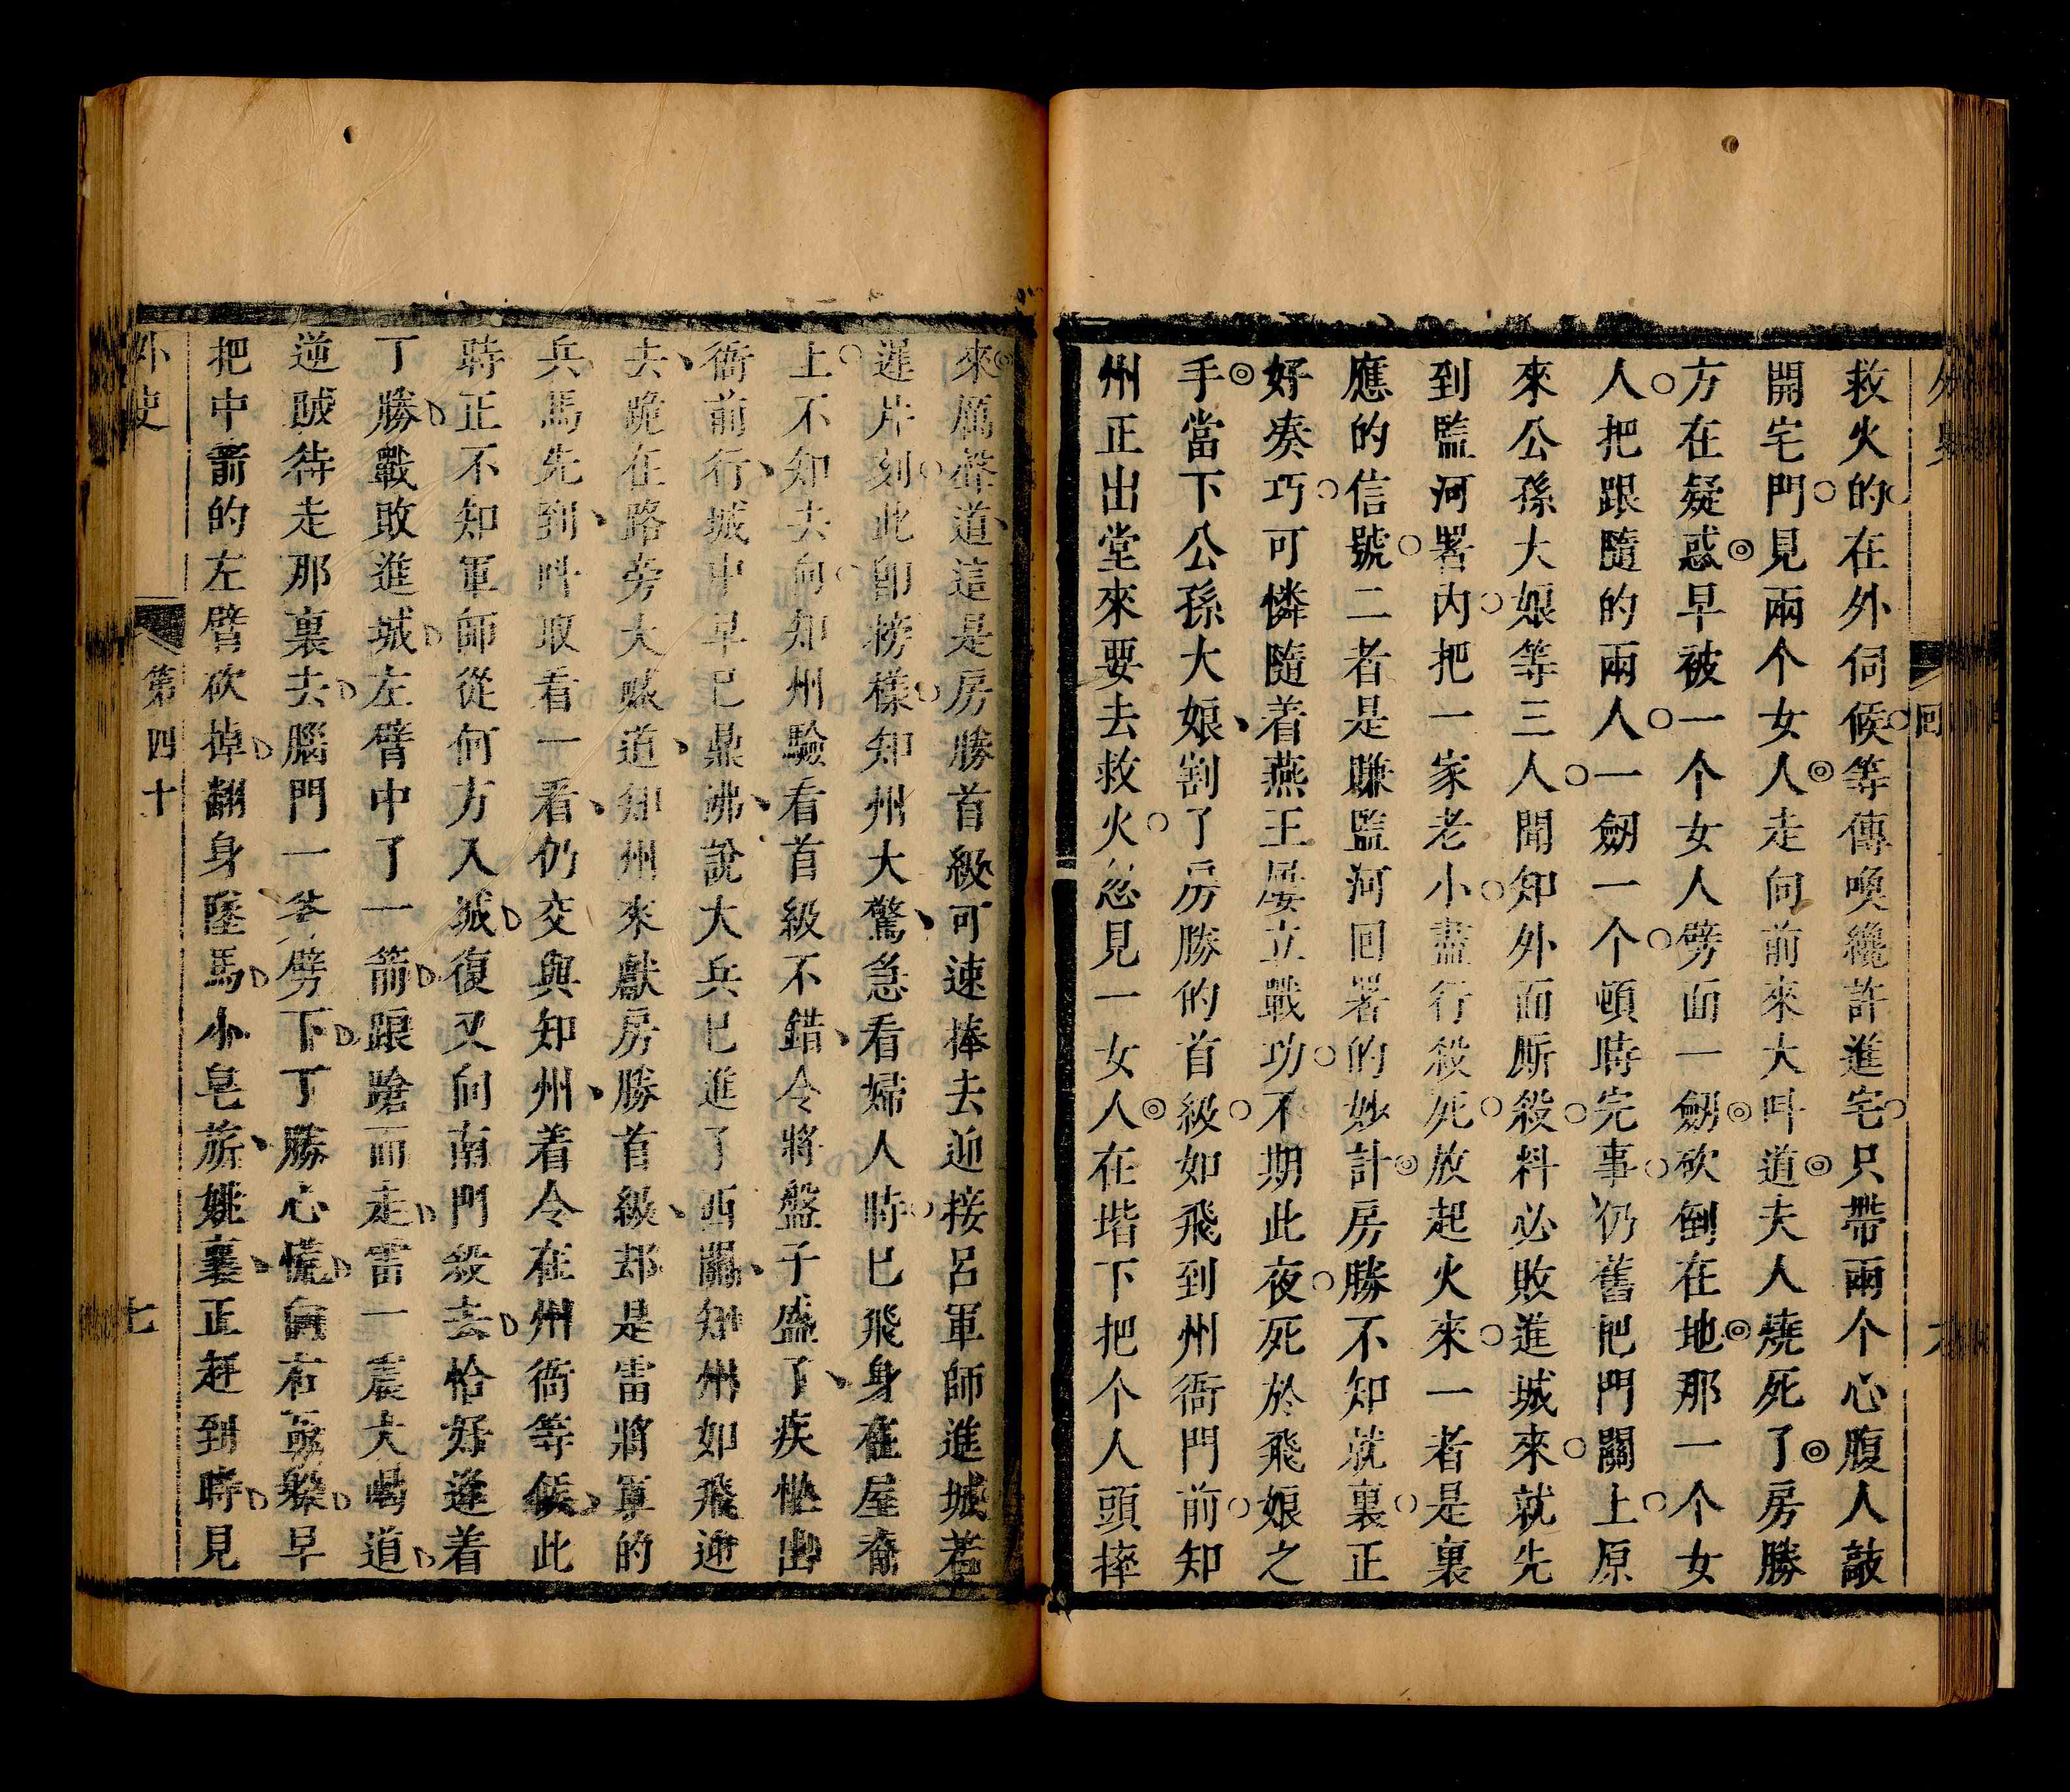 外史
回
六
救火的在外伺候等傳喚纔許進宅只帶兩个心腹人敲
開宅門見兩个女人走向前來大叫道夫人燒死了房勝
方在疑惑早被一个女人劈面一劒砍倒在地那一个女
人把跟隨的兩人一劒一个頓時完事仍舊把門關上原
來公孫大娘等三人聞知外面厮殺料必敗進城來就先
到監河署內把一家老小盡行殺死放起火來一者是裏
應的信號二者是賺監河回署的妙計房勝不知就裏正
好奏巧可憐隨着燕王屢立戰功不期此夜死於飛娘之
手當下公孫大娘割了房勝的首級如飛到州衙門前知
州正出堂來要去救火忽見一女人在堦下把个人頭摔
來厲聲道這是房勝首級可速捧去迎接呂軍師進城若
遲片刻此卽榜樣知州大驚急看婦人時已飛身在屋脊
上不知去向知州驗看首級不錯令將盤子盛了疾忙出
衙前行城中早已鼎沸說大兵已進了西關知州如飛迎
去跪在路旁大喊道知州來獻房勝首級却是雷將軍的
兵馬先到叫取看一看仍交與知州着令在州衙等候此
時正不知軍師從何方入城復又向南門殺去恰好逢着
丁勝戰敗進城左臂中了一箭踉蹌而走雷一震大喝道
逆賊待走那裏去腦門一斧劈下丁勝心慌向右一躲早
把中箭的左臂砍掉翻身墜馬小皂旂姚襄正赶到時見
外史
第四十
七